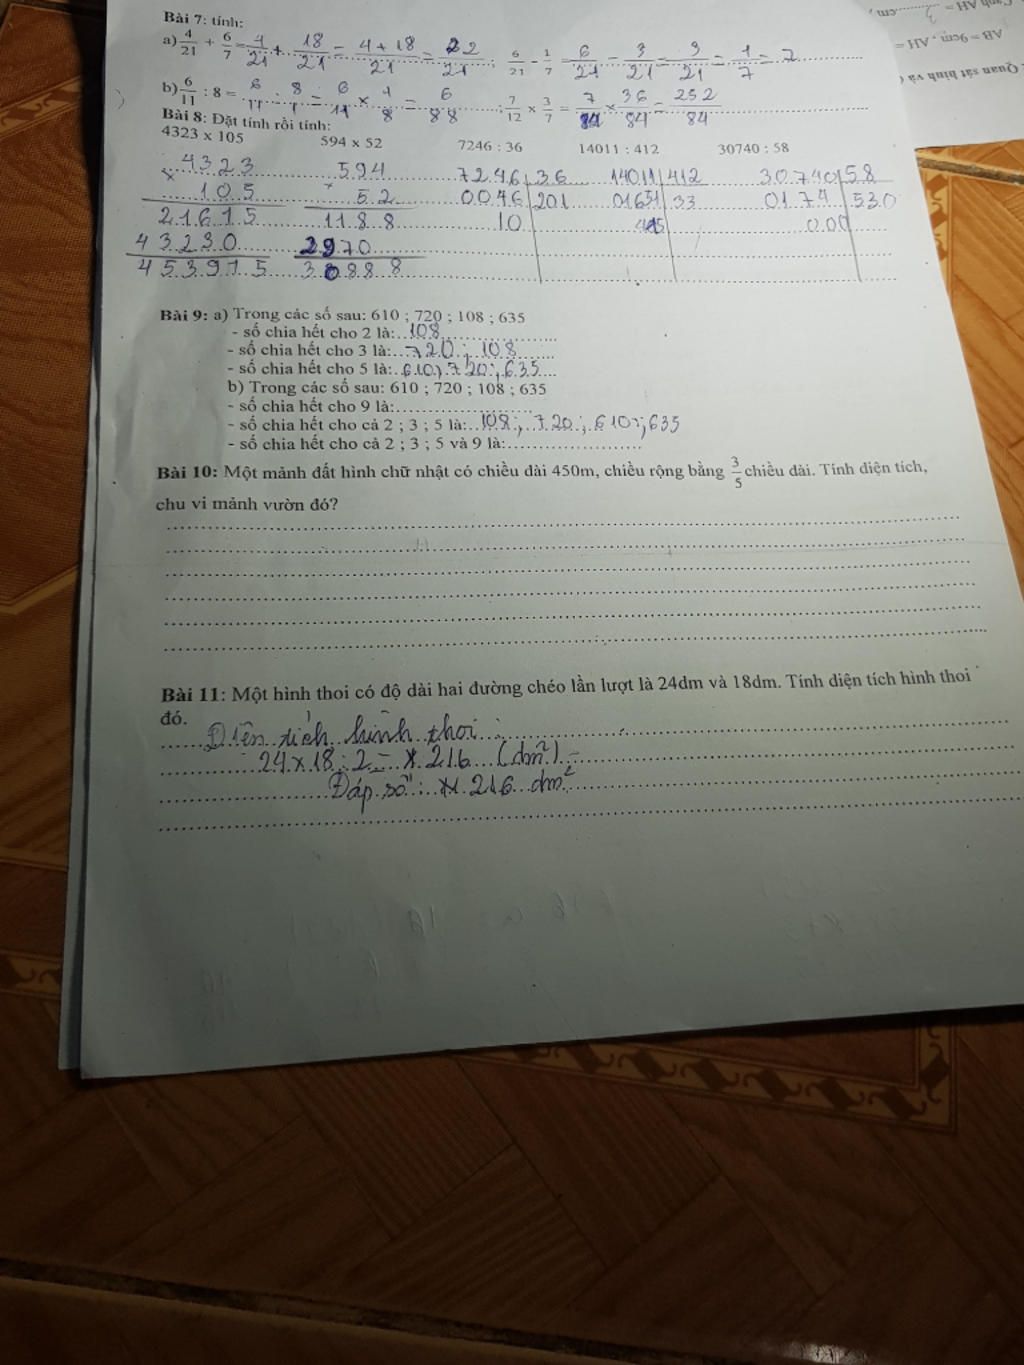 Bài 7: tính:
a) 4/21 + 6/7 = 4/21 + 18/21 = 4+18/21 = 22/21 ; 6/21 - 1/7 = 6/21 - 3/21 = 3/21 = 1/7 = 7
b) 6/11 : 8 = 6/11 : 8/1 = 6/11 × 1/8 = 6/88 ; 7/12 × 3/7 = 7/84 × 36/84 = 252/84
Bài 8: Đặt tính rồi tính:
4323 x 105 594 x 52 7246 : 36 14011 : 412 30740 : 58
× 4323 × 594 7246 36 14011 412 30740 58
105 52 0046 201 01651 33 0174 530
21615 1188 10 000
43230 2970
453915 30888
Bài 9: a) Trong các số sau: 610 ; 720 ; 108 ; 635
- số chia hết cho 2 là: 108
- số chia hết cho 3 là: 720 ; 108
- số chia hết cho 5 là: 610 ; 720 ; 635
b) Trong các số sau: 610 ; 720 ; 108 ; 635
- số chia hết cho 9 là:
- số chia hết cho cả 2 ; 3 ; 5 là: 108 ; 720 ; 610 ; 635
- số chia hết cho cả 2 ; 3 ; 5 và 9 là:
Bài 10: Một mảnh đất hình chữ nhật có chiều dài 450m, chiều rộng bằng 3/5 chiều dài. Tính diện tích,
chu vi mảnh vườn đó?
Bài 11: Một hình thoi có độ dài hai đường chéo lần lượt là 24dm và 18dm. Tính diện tích hình thoi
đó.
Diện tích hình thoi :
24 × 18 : 2 = 216 (dm²)
Đáp số : 216 dm²
cạnh AH = 3 cm,
AB = 9cm , AH =
Quan sát hình và